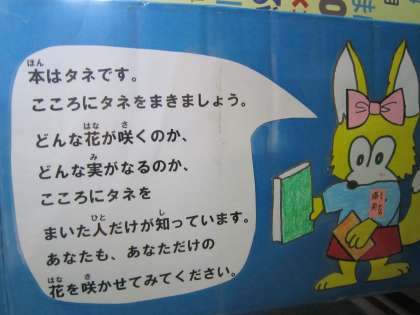 本はタネです。
こころにタネをまきましょう。
どんな花が咲くのか、
どんな実がなるのか、
こころにタネを
まいた人だけが知っています。
あなたも、あなただけの
花を咲かせてみてください。